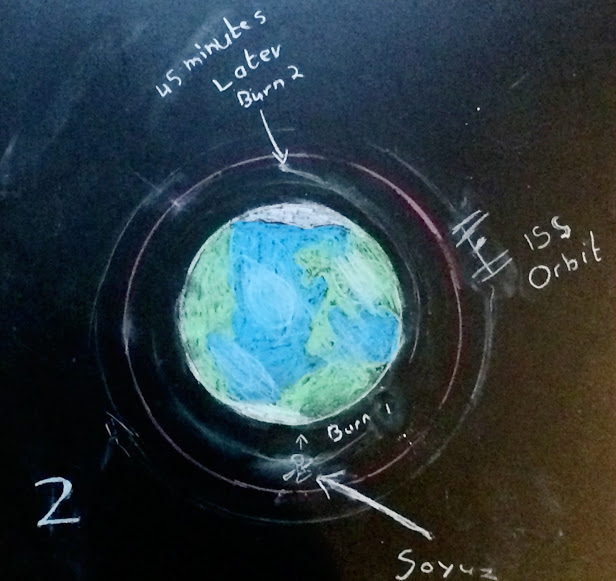 45 minutes
Later
Burn 2
ISS
Orbit
Burn 1
2
Soyuz